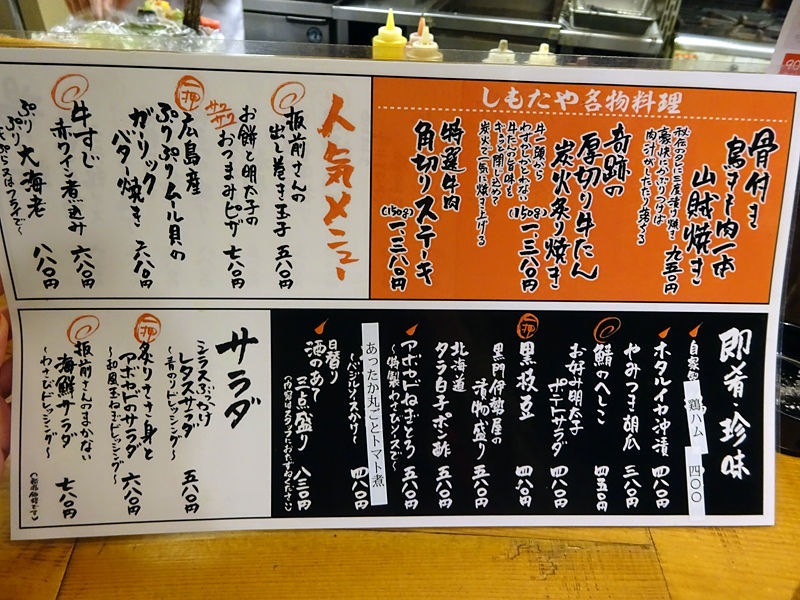 しもたや名物料理
骨付き
鳥もも肉一本
山賊焼き
秘伝のタレに三度漬け焼き
豪快にかぶりつけば
肉汁がしたたり落ちる
九五〇円
奇跡の
厚切り牛たん
炭火炙り焼き
(150g)一、三八〇円
牛一頭から
わずかしかとれない
牛たんの旨味を
ギュッと閉じ込めて
炭火で一気に焼き上げる
特選牛肉
角切りステーキ
(150g)一、三八〇円
人気メニュー
板前さんの
出し巻き玉子 五八〇円
サクサク
お餅と明太子の
おつまみピザ 七八〇円
一押
広島産
ぷりぷりムール貝の
ガーリック
バター焼き 六八〇円
牛すじ
赤ワイン煮込み 六八〇円
ぷりぷり大海老
天ぷら又はフライで〜 八八〇円
即肴 珍味
自家製 鶏ハム 四〇〇
ホタルイカ沖漬 四八〇円
やみつき胡瓜 三八〇円
鯖のへしこ 四五〇円
お好み明太子
ポテトサラダ 四八〇円
一押
黒枝豆 四八〇円
黒門伊勢屋の
漬物盛り 五八〇円
北海道
タラ白子ポン酢 五八〇円
アボカドねぎとろ
〜特製わさびソースで〜 五八〇円
あったか丸ごとトマト煮
〜バジルソースかけ〜 四八〇円
日替り
酒のあて
三点盛り 八三〇円
(内容はスタッフにおたずねください)
サラダ
シラスぶっかけ
レタスサラダ
〜青のりドレッシング〜 五八〇円
一押
炙りささ身と
アボカドのサラダ
〜和風玉ねぎドレッシング〜 六八〇円
板前さんのまかない
海鮮サラダ
〜わさびドレッシング〜 七八〇円